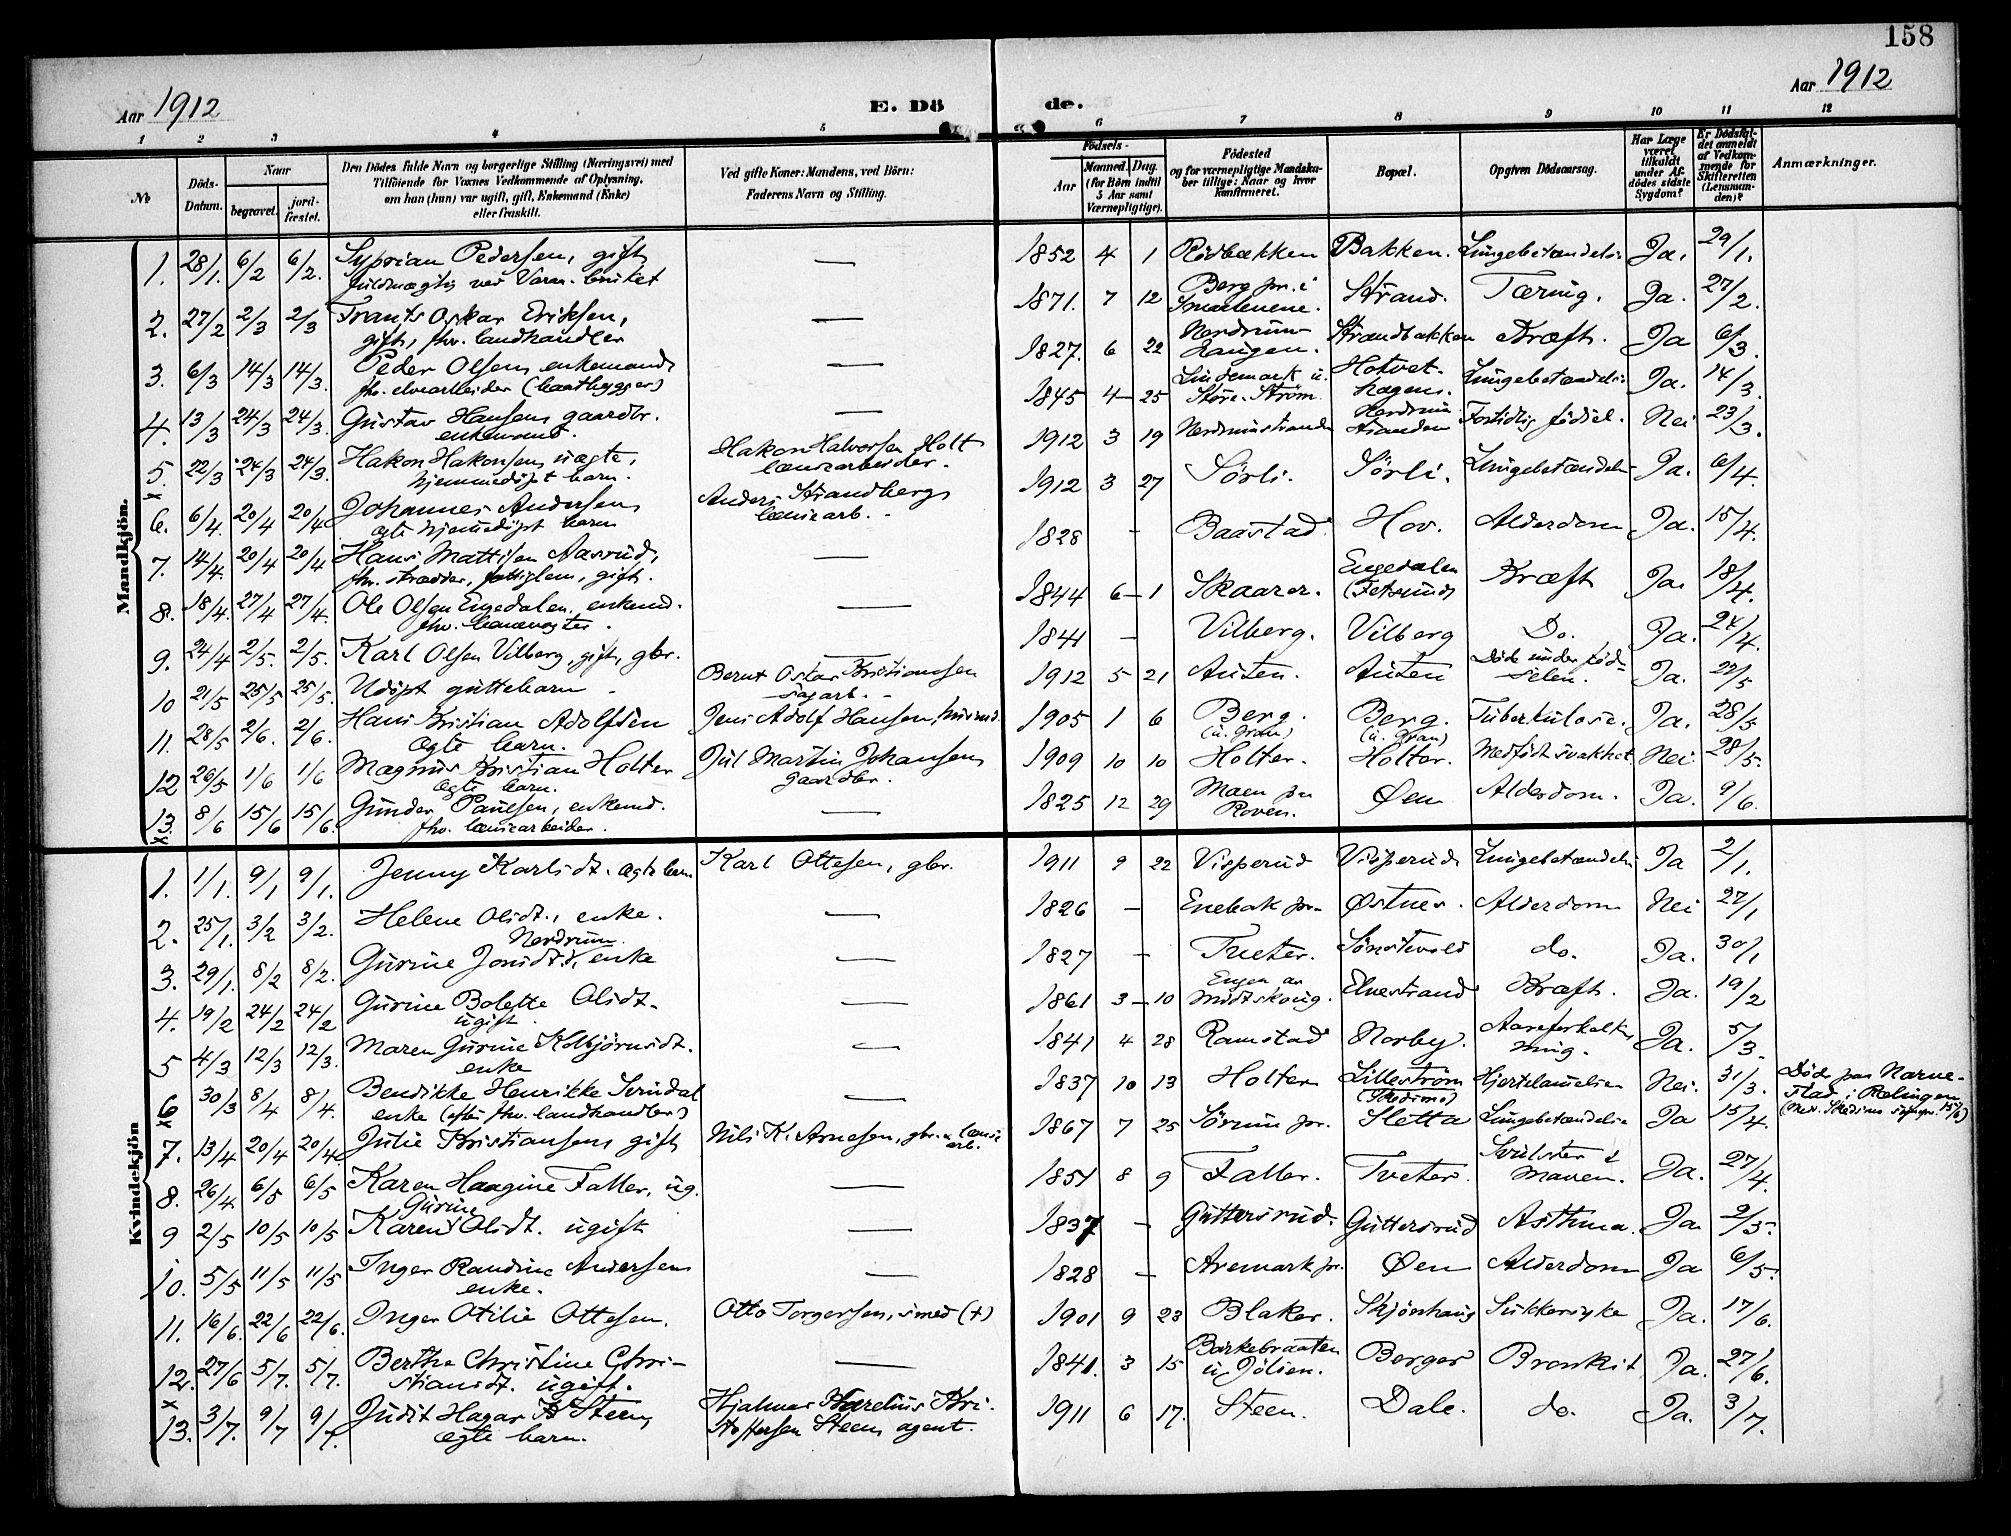 158
Aar 1912
E. Dö
de.
Aar 1912
1 2 3 4 5 6 7 8 9 10 11 12
No
Döds-Datum.
Naar
begravet.
jord-fæstet.
Den Dödes fulde Navn og borgerlige Stilling (Næringsvei) med
Tilföiende for Voxnes Vedkommende af Oplysning,
om han (hun) var ugift, gift, Enkemand (Enke)
eller fraskilt.
Ved gifte Koner: Mandens, ved Börn:
Faderens Navn og Stilling.
Födsels-
Aar
Maaned. Dag.
(for Börn indtil
5 Aar samt
Værnepligtige).
Födested
og for værnepligtige Mandska-
ber tillige: Naar og hvor
konfirmeret.
Bopæl.
Opgiven Dödsaarsag.
Har Læge
været
tilkaldt
under Af-
dödes sidste
Sygdom?
Er Dödsfal-
det anmeldt
af Vedkom-
mende for
Skifteretten
(Lensman-
den)?
Anmærkninger.
Mandkjön.
1. 28/1. 6/2 6/2. Syprian Pedersen, gift — 1852 4 1 Rödbækken Bakken. Lungebetændelse Ja. 29/1.
fuldmægtig ved Varn. bruket
2. 27/2 2/3 2/3 Frants Oskar Eriksen, — 1871. 7 12 Berg pr. i Smaalenene. Strand. Tæring. Ja. 27/2.
gift, fhv. landhandler
3. 6/3 14/3 14/3. Peder Olsen, enkemand — 1827. 6 22 Nordrum-Hangen. Strandbakken Kræft. Ja 6/3.
fhv. elvearbeider (baatbygger)
4. 13/3 24/3 24/3. Gustav Hansen, gaardbr. — 1845 4 25 Lindemark u. Store-Ström. Hotvet-hagen. Lungebetændelse Ja. 14/3.
enkemand.
5. 22/3 24/3 24/3. Hakon Hakonsen, uægte, Hakon Halvorsen Holt 1912 3 19 Nordrumstranden Nordrum Stranden Fortidlig födsel. Nei 23/3.
hjemmedöpt barn. lænsearbeider.
x
6. 6/4. 20/4 20/4 Johannes Andersen Anders Strandberg 1912 3 27 Sörli. Sörli. Lungebetændelse Ja. 6/4.
ægte hjemmedöpt barn lænsearb.
7. 14/4. 20/4 20/4 Hans Mattisen Aasrud, — 1828 — Baastad Hov. Alderdom Ja. 15/4.
fhv. skrædder, fattiglem, gift.
8. 18/4. 27/4 27/4. Ole Olsen Engedalen, enkemd. — 1844 6 1 Skaarer. Engedalen (Fetsund) Kræft Ja. 18/4.
fhv. banevogter.
9. 24/4 2/5. 2/5. Karl Olsen Vilberg, gift, gbr. — 1841 — Vilberg. Vilberg Do. Ja. 24/4.
10 21/5 25/5 25/5. Udöpt guttebarn Bernt Oskar Kristiansen 1912 5 21 Auten. Auten Döde under föd-selen. Ja. 22/5
sagarb.
11. 28/5 2/6. 2/6. Hans Kristian Adolfsen Jens Adolf Hansen, 1905 1 6 Berg. (u. Gran) Berg. (u. Gran) Tuberkulose. Ja. 28/5
ægte barn.
12 26/5 1/6 1/6 Magnus Kristian Holter Jul Martin Johansen 1909 10 10 Holter. Holter. Medfödt svakhet Nei 28/5.
ægte barn. gaardbr.
13. 8/6 15/6 15/6. Gunder Paulsen, enkemd. — 1825 12 29 Moen pr. Roven. Øen Alderdom. Ja. 9/6.
x fhv. lænsearbeider.
Kvindekjön
1. 1/1. 9/1 9/1. Jenny Karlsdt. ægte barn Karl Ottesen, gbr. 1911 9 22 Visperud Visperud Lungebetændelse Ja 2/1.
2. 25/1. 3/2 3/2. Helene Olsdt., enke. — 1826 — Enebak pr. Østner. Alderdom Nei 27/1
Nordrum.
3. 29/1. 8/2 8/2. Gurine Jonsdt., enke — 1827 — Tveter. Sönstevold do. Ja. 30/1
4. 19/2 24/2 24/2 Gurine Bolette Olsdt. — 1861 3 10 Engen av Midtskoug. Elvestrand Kræft. Ja. 19/2
ugift.
5 4/3 12/3 12/3. Maren Gurine Kolbjörnsdt. — 1841 4 28 Ramstad Norby. Aareforkalkning. Ja. 5/3.
enke
6 30/3 8/4 8/4. Bendikke Henrikke Svindal — 1837 10 13 Holter Lilleström (Skedsmo) Hjertelammelse Nei. 31/3. Döde paa Narve-
x enke (efter fhv. landhandler) stad i Rælingen
7. 13/4 20/4 20/4. Julie Kristiansen, gift Nils K. Arnesen, gbr. & lænse arb. 1867 7 25 Sörum pr. Sletta Lungebetændelse Ja 15/4.
8. 26/4 6/5 6/5 Karen Haagine Faller, ug. — 1851 8 9 Faller. Tveter. Svulster i Maven. Ja. 27/4.
9 2/5 10/5 10/5 Karen Gurine Olsdt. ugift — 1837 — Guttersrud. Guttersrud Asthma. Ja 2/5.
10. 5/5 11/5 11/5 Inger Randine Andersen — 1828 — Aremark pr. Øen Alderdom Ja 6/5.
enke.
11. 16/6. 22/6 22/6. Inger Otilie Ottesen. Otto Torgersen, smed (+) 1901 9 23 Blaker. Skjönhaug Sukkersyke Ja. 17/6.
12. 27/6 5/7. 5/7. Berthe Christine Chri- — 1841. 3 15 Barkebraaten u. Jölsen. Berger Bronkit Ja. 27/6.
x stiansdt. ugift.
13. 3/7. 9/7 9/7. Judit Hagar Steen, Hjalmar Marelius Kri- 1911 6 17. Steen. Dale. do. Ja. 3/7.
ægte barn. stoffersen Steen, agent.